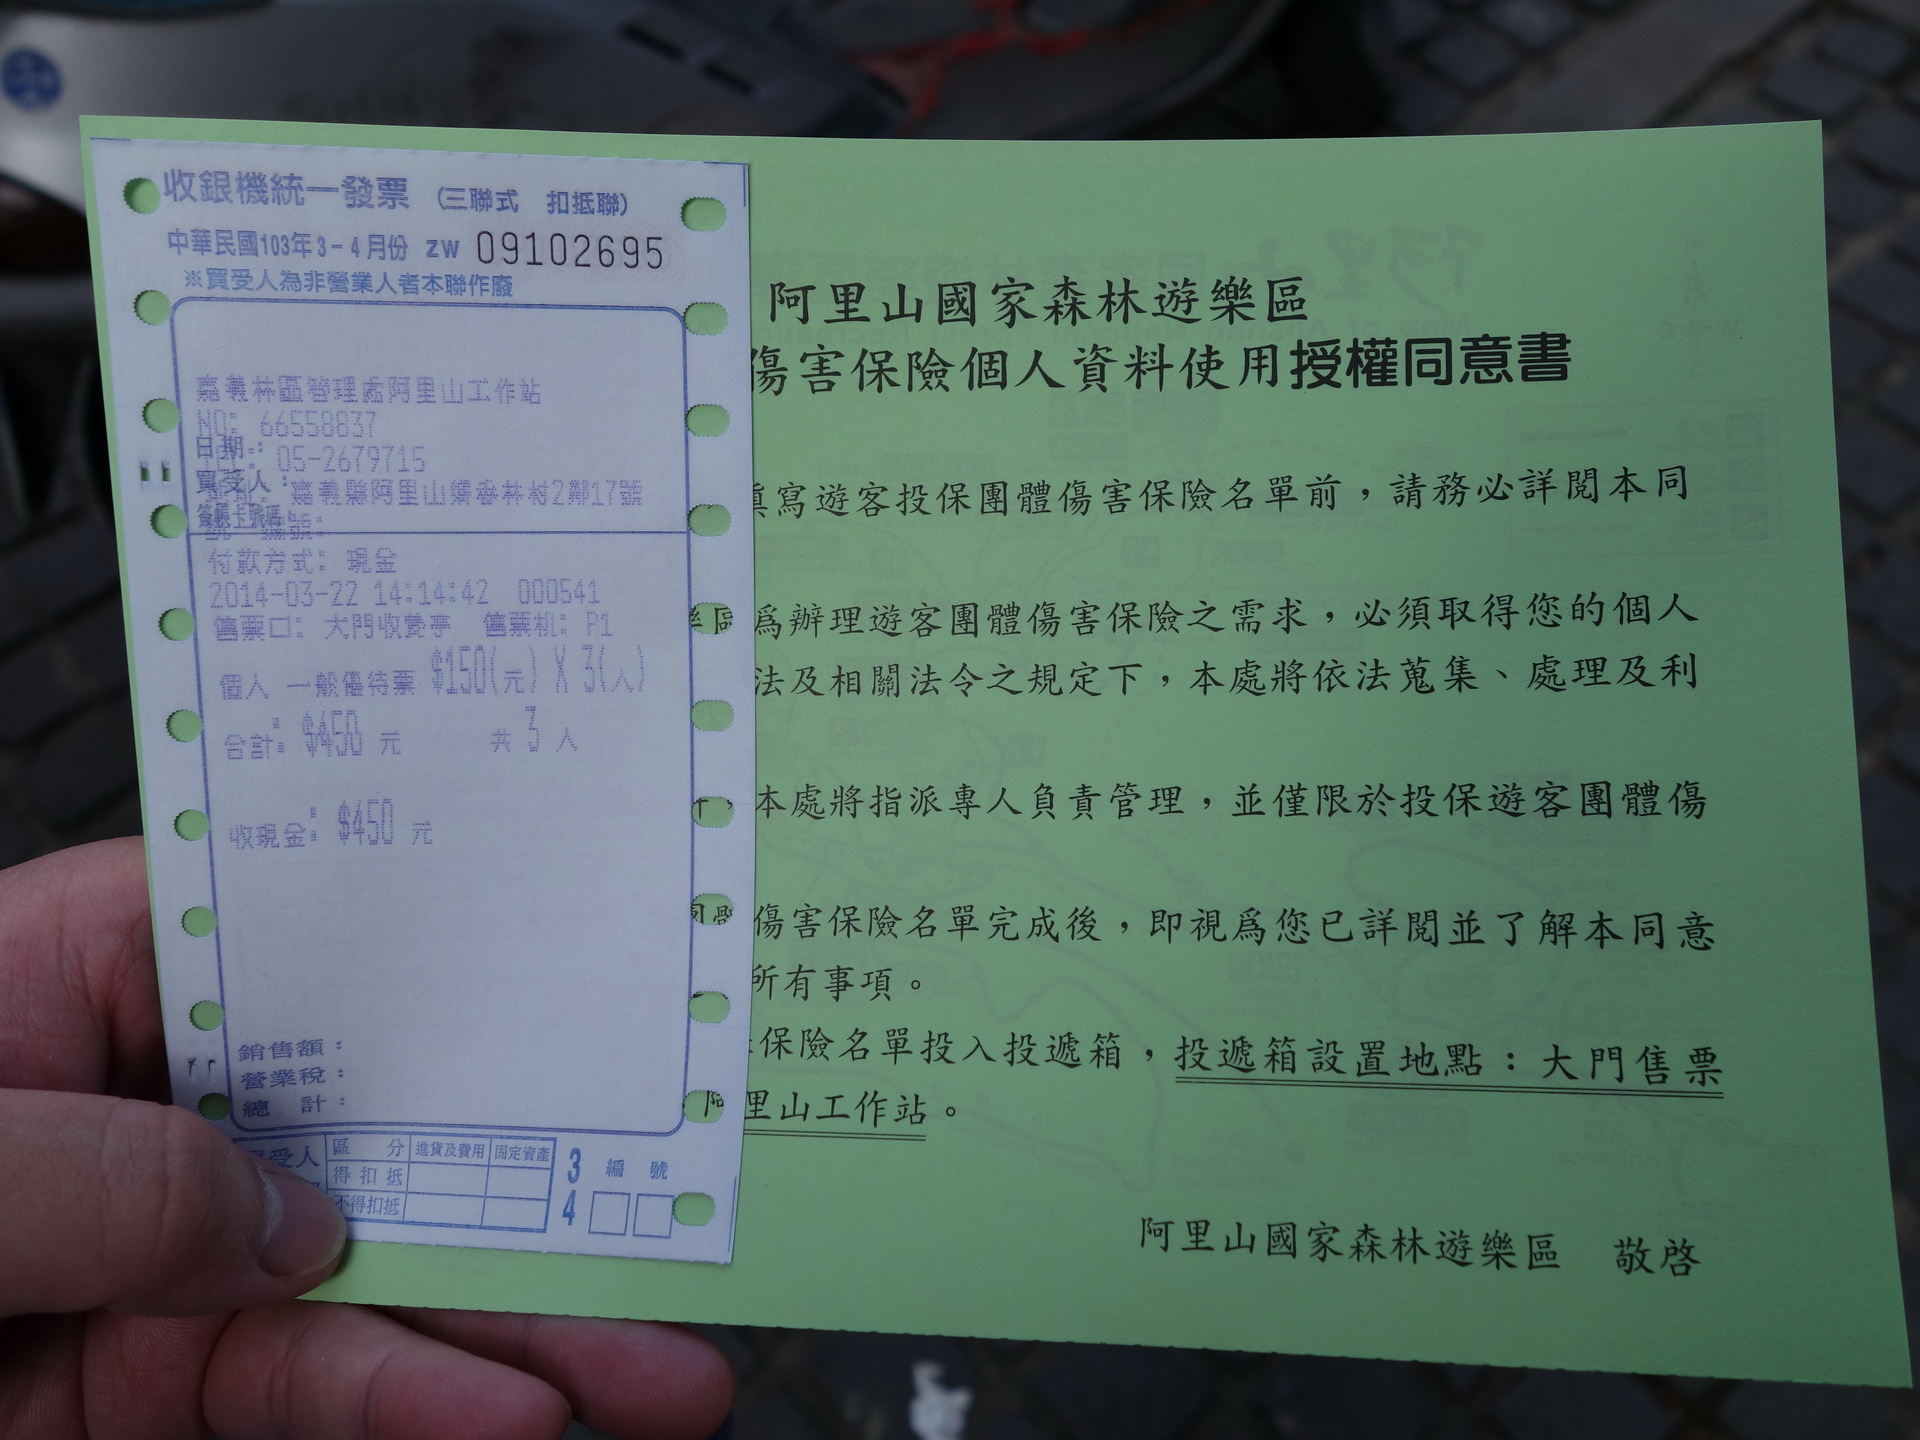 收銀機統一發票 (三聯式 扣抵聯)
中華民國103年3-4月份 ZW 09102695
※買受人為非營業人者本聯作廢
嘉義林區管理處阿里山工作站
NO: 66558837
日期:
05-2679715
買受人:
嘉義縣阿里山鄉香林村2鄰17號
付款方式: 現金
2014-03-22 14:14:42 000541
售票口: 大門收費亭 售票机: P1
個人 一般優待票 $150(元) X 3(人)
合計: $450 元 共 3 人
收現金: $450 元
銷售額:
營業稅:
總 計:
受人
區 分 進貨及費用 固定資產
得扣抵
不得扣抵
3 4 編 號
阿里山國家森林遊樂區
傷害保險個人資料使用授權同意書
填寫遊客投保團體傷害保險名單前，請務必詳閱本同
為辦理遊客團體傷害保險之需求，必須取得您的個人
法及相關法令之規定下，本處將依法蒐集、處理及利
本處將指派專人負責管理，並僅限於投保遊客團體傷
傷害保險名單完成後，即視為您已詳閱並了解本同意
所有事項。
保險名單投入投遞箱，投遞箱設置地點：大門售票
里山工作站。
阿里山國家森林遊樂區 敬啓